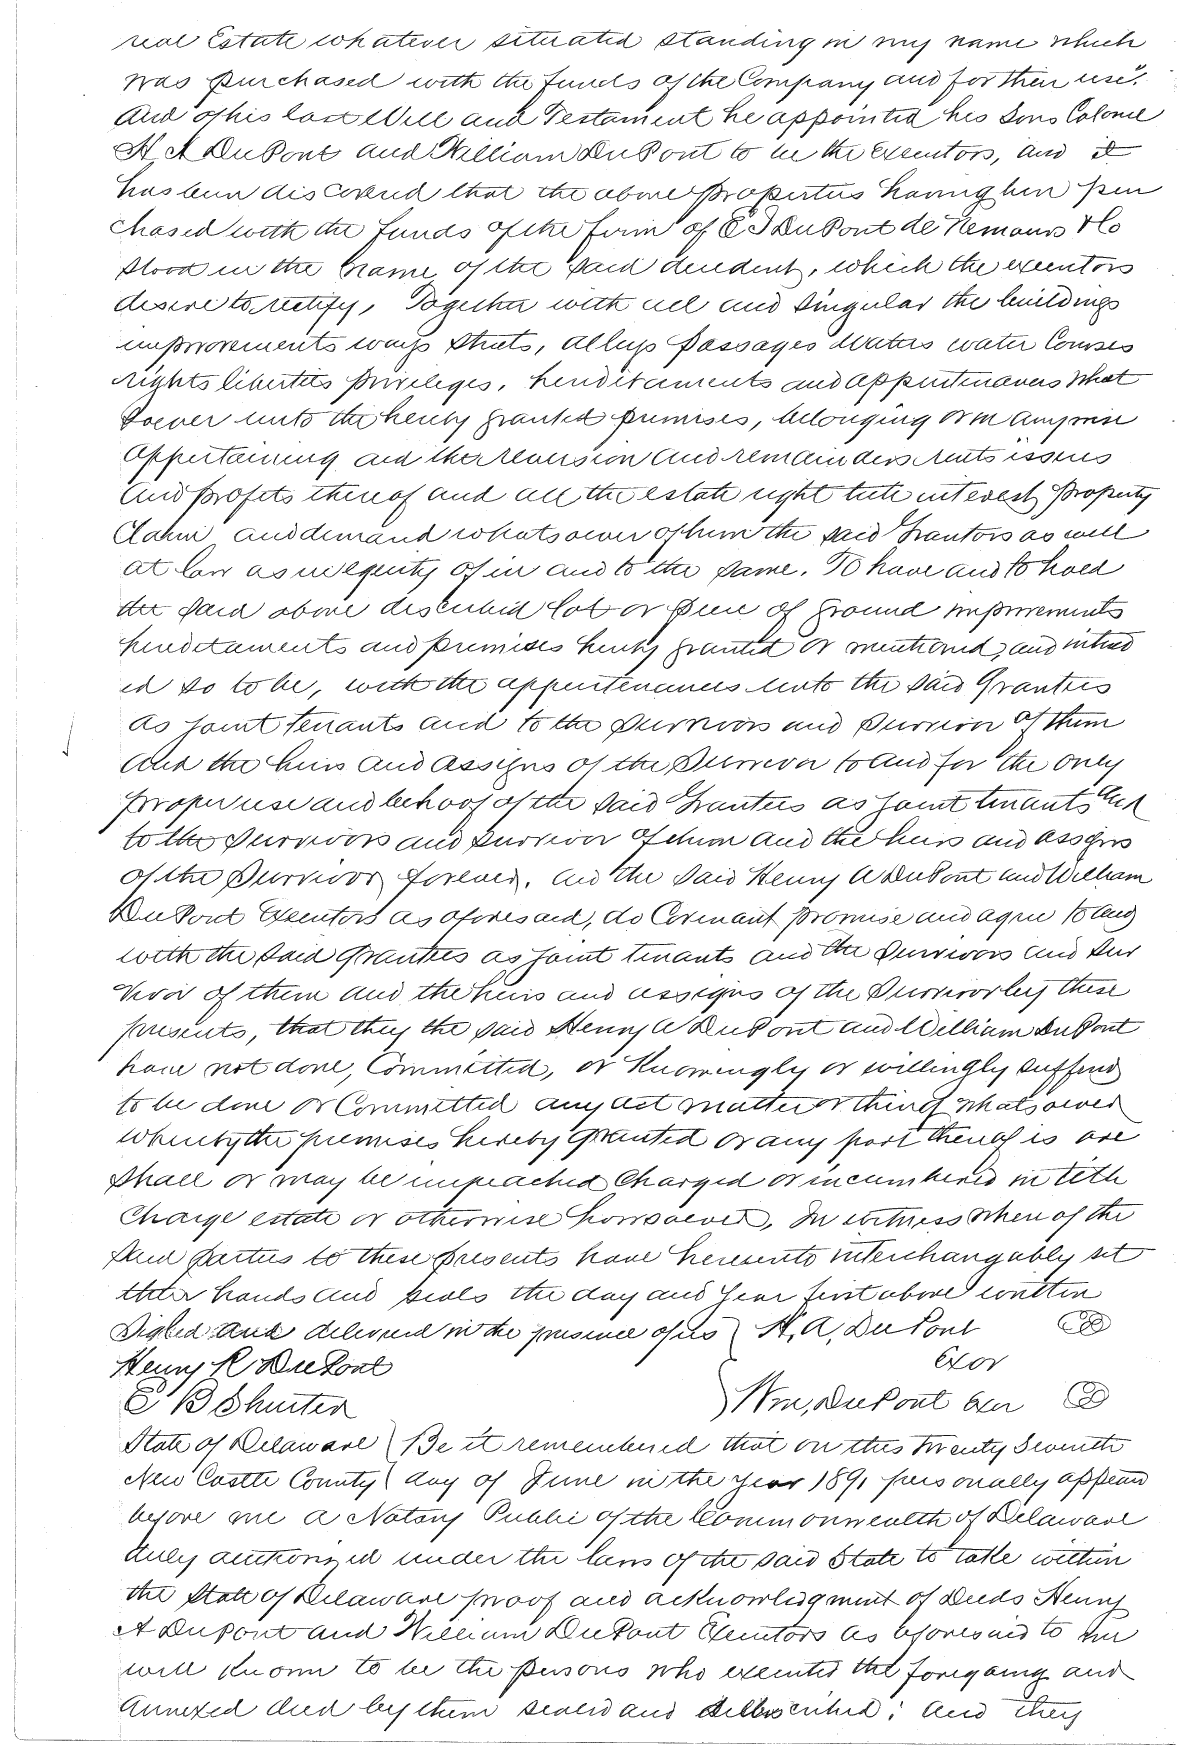 real Estate whatever situated standing in my name which
was purchased with the funds of the Company and for their use".
And of his last Will and Testament he appointed his Sons Colonel
H, A DuPont and William DuPont to be the Executors, and it
has been discovered that the above properties having been pur
chased with the funds of the firm of E I DuPont de Nemours & Co
stood in the name of the said decedent, which the executors
desire to rectify, Together with all and singular the buildings
improvements ways streets, alleys passages waters water Courses
rights liberties privileges, hereditaments and appurtenances what
soever unto the hereby granted premises, belonging or in anywise
appertaining and the reversion and remainders rents issues
and profits thereof and all the estate right title interest property
Claim and demand whatsoever of them the said Grantors as well
at law as in equity of in and to the same. To have and to hold
the said above described lot or piece of ground improvements
hereditaments and premises hereby granted or mentioned, and intend
ed so to be, with the appurtenances unto the said Grantees
as joint tenants and to the survivors and survivor of them
and the heirs and assigns of the Survivor to and for the only
proper use and behoof of the said Grantees as joint tenants and
to the Survivors and survivor of them and the heirs and assigns
of the Survivor, forever. And the said Henry A DuPont and William
DuPont Executors as aforesaid, do Covenant promise and agree to and
with the said grantees as joint tenants and the Survivors and Sur
vivor of them and the heirs and assigns of the Survivor by these
presents, that they the said Henry A DuPont and William DuPont
have not done, Committed, or Knowingly or willingly suffered
to be done or Committed any act matter or thing whatsoever
whereby the premises hereby granted or any part thereof is are
shall or may be impeached Charged or incumbered in title
Charge estate or otherwise howsoever, In witness whereof the
said parties to these presents have hereunto interchangably set
their hands and seals the day and year first above written
Signed and delivered in the presence of us } H, A, DuPont
Henry R DuPont Exor
E B Shurter } Wm, DuPont Exor
State of Delaware } Be it remembered that on this twenty Seventh
New Castle County } day of June in the year 1891 personally appeared
before me a Notary Public of the Commonwealth of Delaware
duly authorized under the laws of the said State to take within
the State of Delaware proof and acknowledgment of Deeds Henry
A DuPont and William DuPont Executors as aforesaid to me
well Known to be the persons who executed the foregoing and
annexed deed by them sealed and subscribed; and they